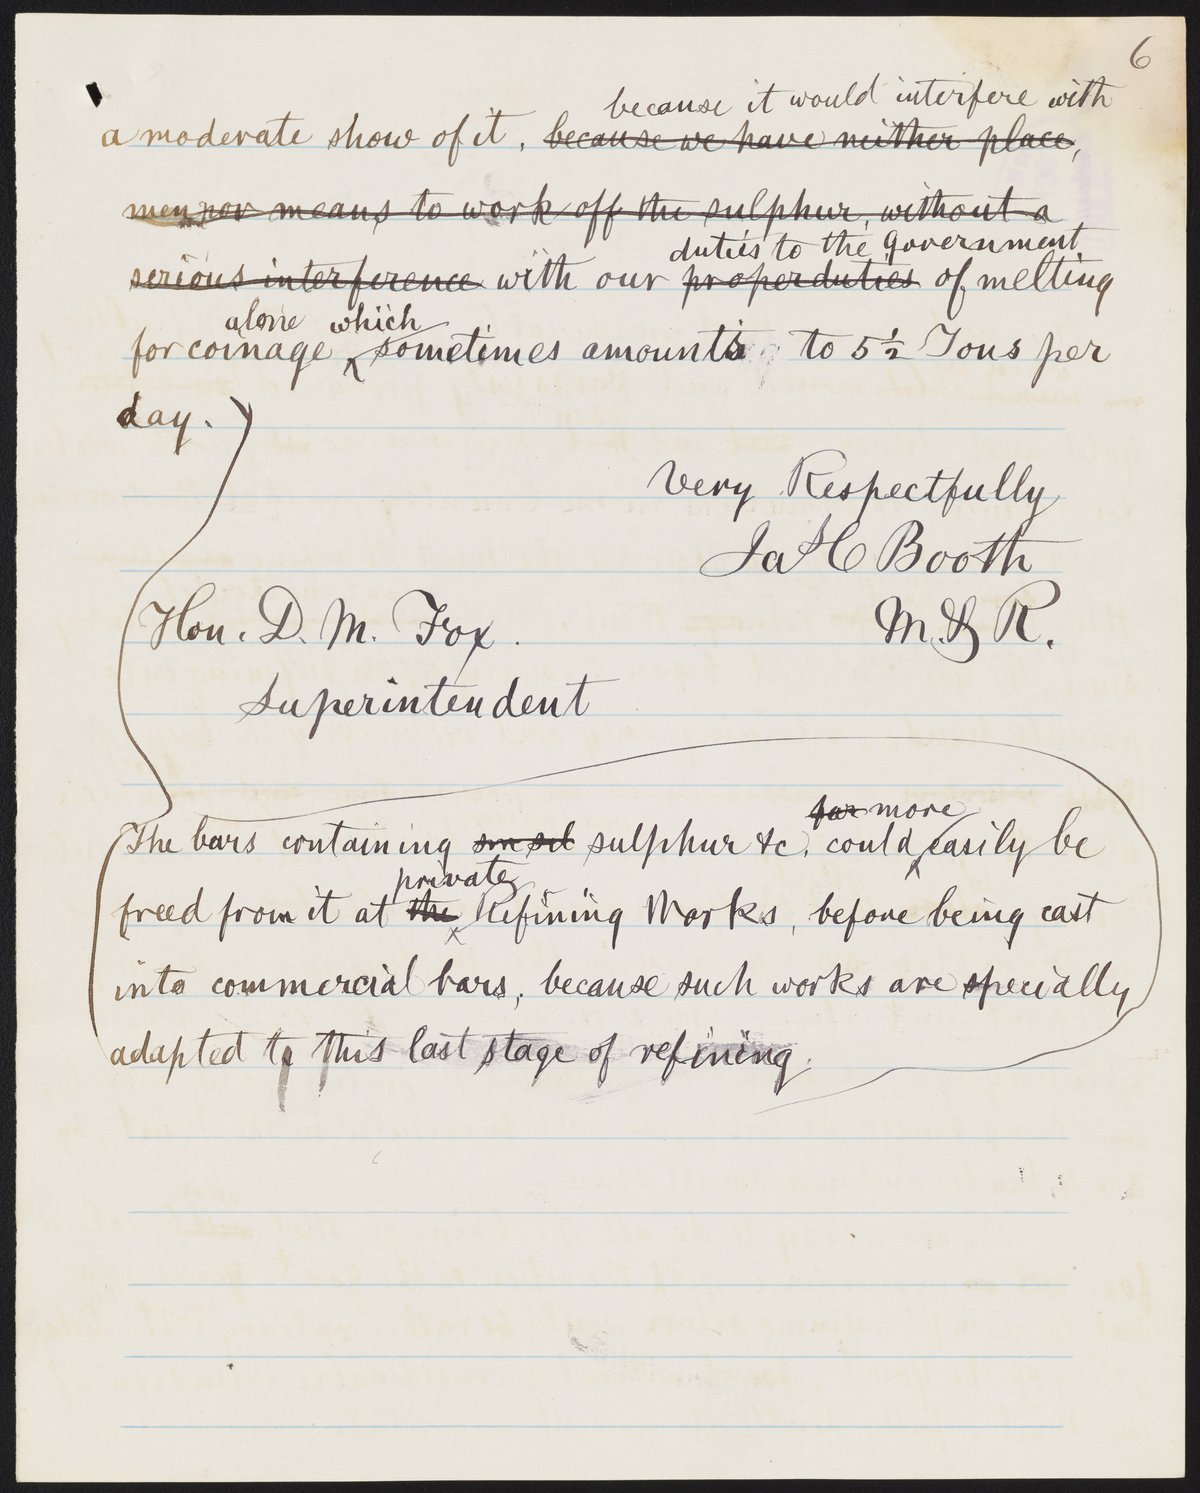 6
because it would interfere with
a moderate show of it, because we have neither place,
men nor means to work off the sulphur, without a
duties to the Government
serious interference with our proper duties of melting
alone which
for coinage sometimes amounts to 5½ Tons per
day.
Very Respectfully
Jas C Booth
M. & R.
Hon. D. M. Fox.
Superintendent
far more
The bars containing sulphur &c. could easily be
private
freed from it at the Refining Works, before being cast
into commercial bars, because such works are specially
adapted to this last stage of refining.